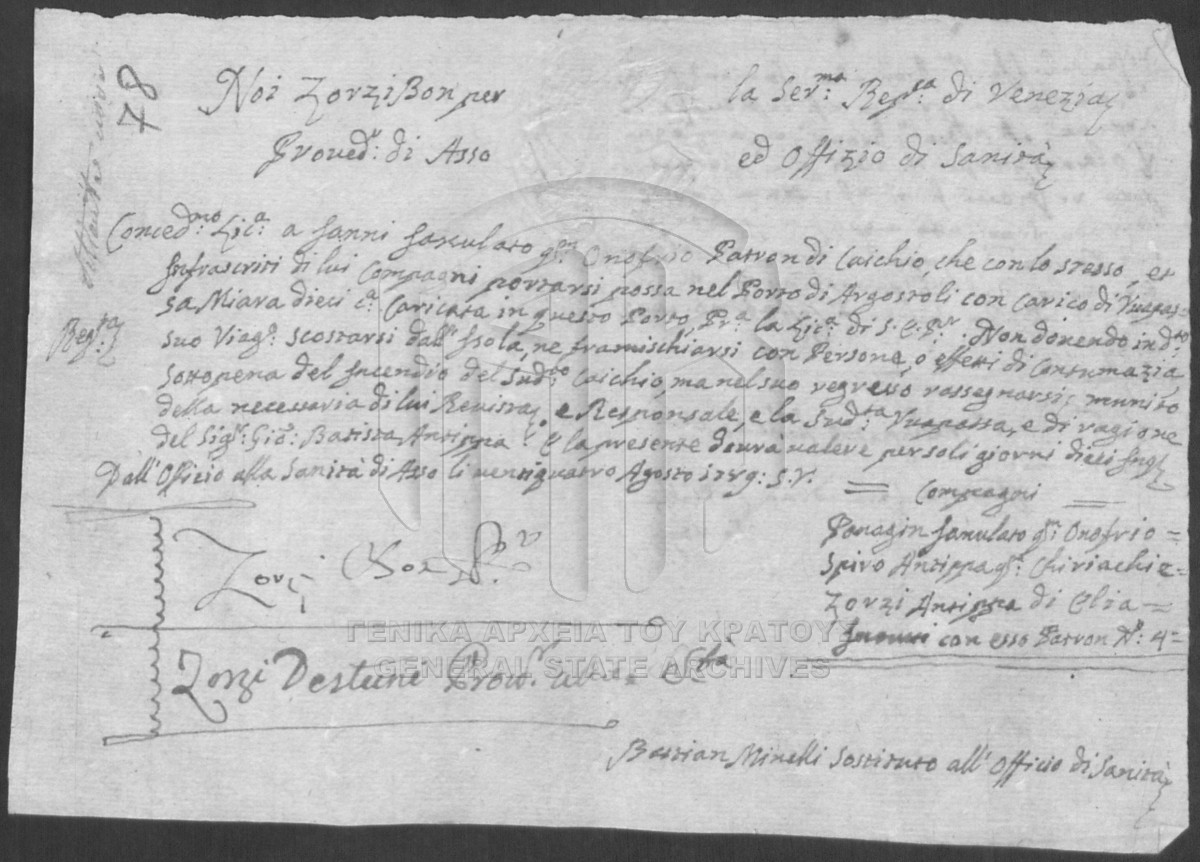 78
Noi Zorzi Bon per la Ser.ma Rep.ca di Venezia
Proued.r di Asso ed Offizio di Sanità
Conced.mo Lic.a a Janni Januluto q.m Onofrio Patron di Caichio, che con lo stesso, et
Infrascritti di lui Compagni portarsi possa nel Porto di Argostoli con carico di Vuapas=
sa Miara dieci c.a Caricata in questo Porto, Pr.a la Lic.a di S. E. P.r Non donendo in d.to
suo Viag.o scostarsi dall' Isola, ne framischiarsi con Persone, o effetti di Contumazia,
sottopena del Incendio del Sud.to Caichio, ma nel suo regresso rassegnarsi munito
della necessaria di lui Reuista, e Responsale, e la Sud.ta Vuapassa, e di ragione
del Sig.r Gio: Batista Antippa: E la presente dourà ualere per soli giorni dieci
Dall' Officio alla Sanità di Asso li uentiquatro Agosto 1789: S.V.
Reg.ta
Compagni
Panagin Januluto q.m Onofrio =
Spiro Antippa q.m Chiriachi =
Zorzi Antippa di Elia =
con esso Patron N.o: 4 =
Zorzi Bon P.r
Zorzi Destuni Prou.r alla
Bastian Minelli Sostituto all' Officio di Sanità
ΓΕΝΙΚΑ ΑΡΧΕΙΑ ΤΟΥ ΚΡΑΤΟΥΣ
GENERAL STATE ARCHIVES